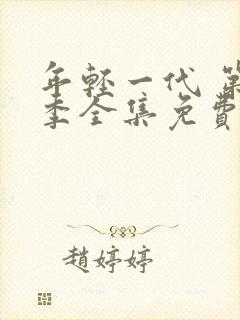 年轻一代 第
季全集免费
趙婷婷